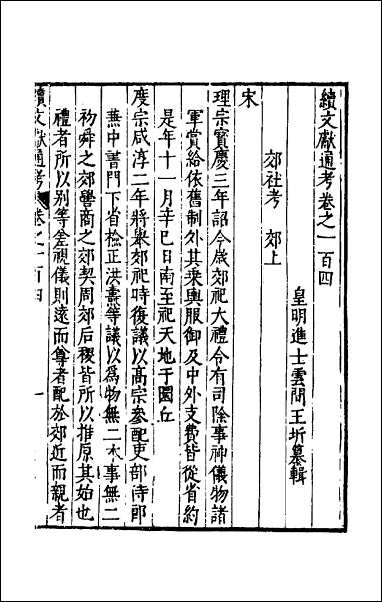 續文獻通考卷之一百四
皇明進士雲間王圻纂輯
郊社考 郊上
宋
理宗寶慶三年詔今歲郊祀大禮令有司除事神儀物諸
軍賞給依舊制外其乘輿服御及中外支費皆從省約
是年十一月辛巳日南至祀天地于圜丘
度宗咸淳二年將舉郊祀時復議以高宗參配吏部侍郎
兼中書門下省檢正洪燾等議以爲物無二本事無二
初舜之郊嚳商之郊契周郊后稷皆所以推原其始也
禮者所以別等差視儀則遠而尊者配於郊近而親者
續文獻通考 卷之一百四 一